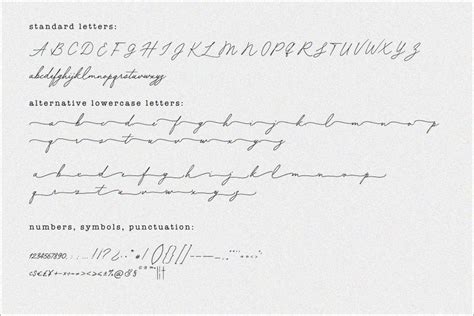 standard letters:
A B C D E F G H I J K L M N O P Q R S T U V W X Y Z
a b c d e f g h i j k l m n o p q r s t u v w x y z
alternative lowercase letters:
a b c d e f g h i j k l m n o p
q r s t u v w x y z
a b c d e f g h i j k l m n o p
q r s t u v w x y z
numbers, symbols, punctuation:
1234567890